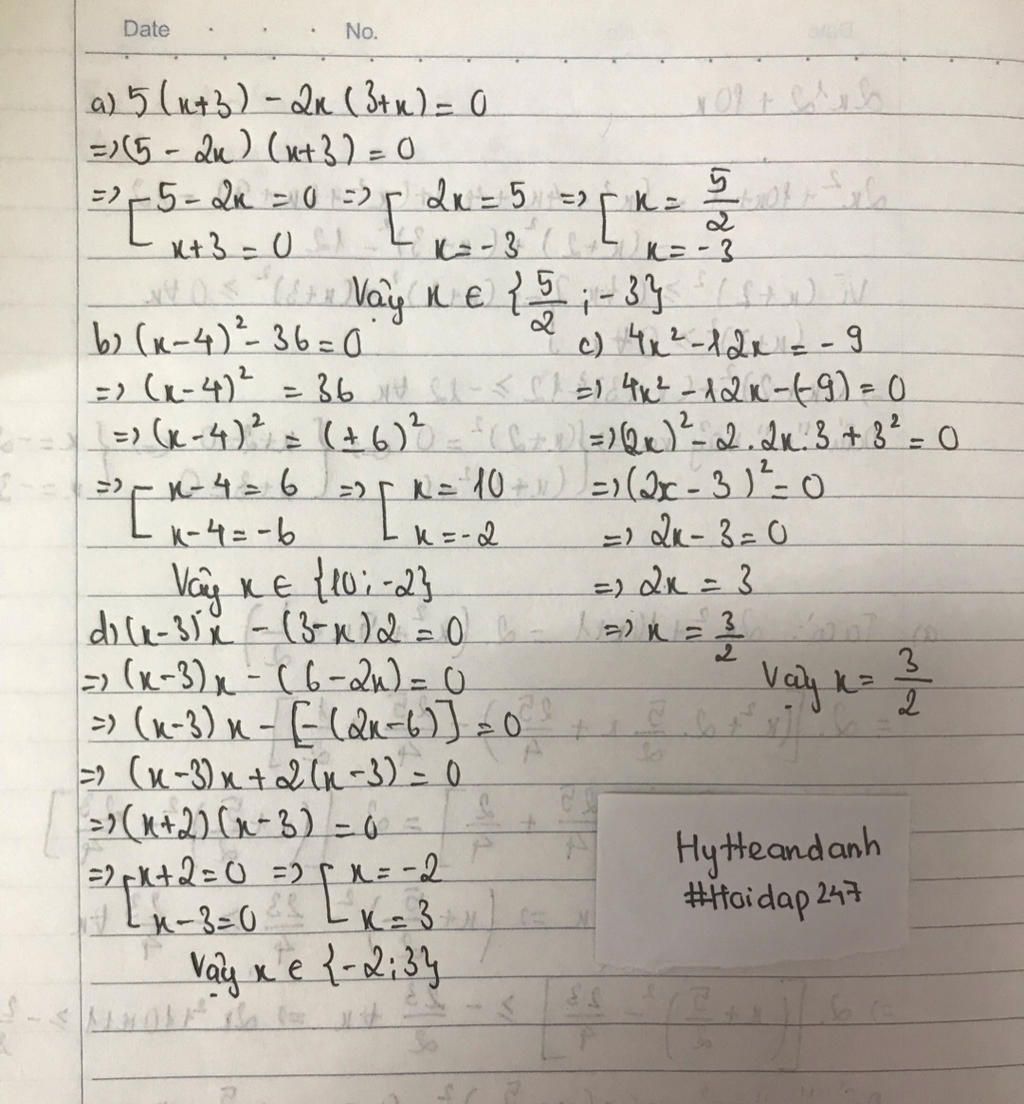 Date . . . No.
a) 5(x+3) - 2x(3+x) = 0
=> (5 - 2x)(x+3) = 0
=> [ 5 - 2x = 0 => [ 2x = 5 => [ x = 5/2
x+3 = 0 x = -3 x = -3
Vậy x ∈ {5/2 ; -3}
b) (x-4)² - 36 = 0
=> (x-4)² = 36
=> (x-4)² = (±6)²
=> [ x-4 = 6 => [ x = 10
x-4 = -6 x = -2
Vậy x ∈ {10; -2}
c) 4x² - 12x = -9
=> 4x² - 12x - (-9) = 0
=> (2x)² - 2.2x.3 + 3² = 0
=> (2x - 3)² = 0
=> 2x - 3 = 0
=> 2x = 3
=> x = 3/2
Vậy x = 3/2
d) (x-3)x - (3-x)2 = 0
=> (x-3)x - (6-2x) = 0
=> (x-3)x - [-(2x-6)] = 0
=> (x-3)x + 2(x-3) = 0
=> (x+2)(x-3) = 0
=> [ x+2 = 0 => [ x = -2
x-3 = 0 x = 3
Vậy x ∈ {-2; 3}
Hytteandanh
#Hoidap247